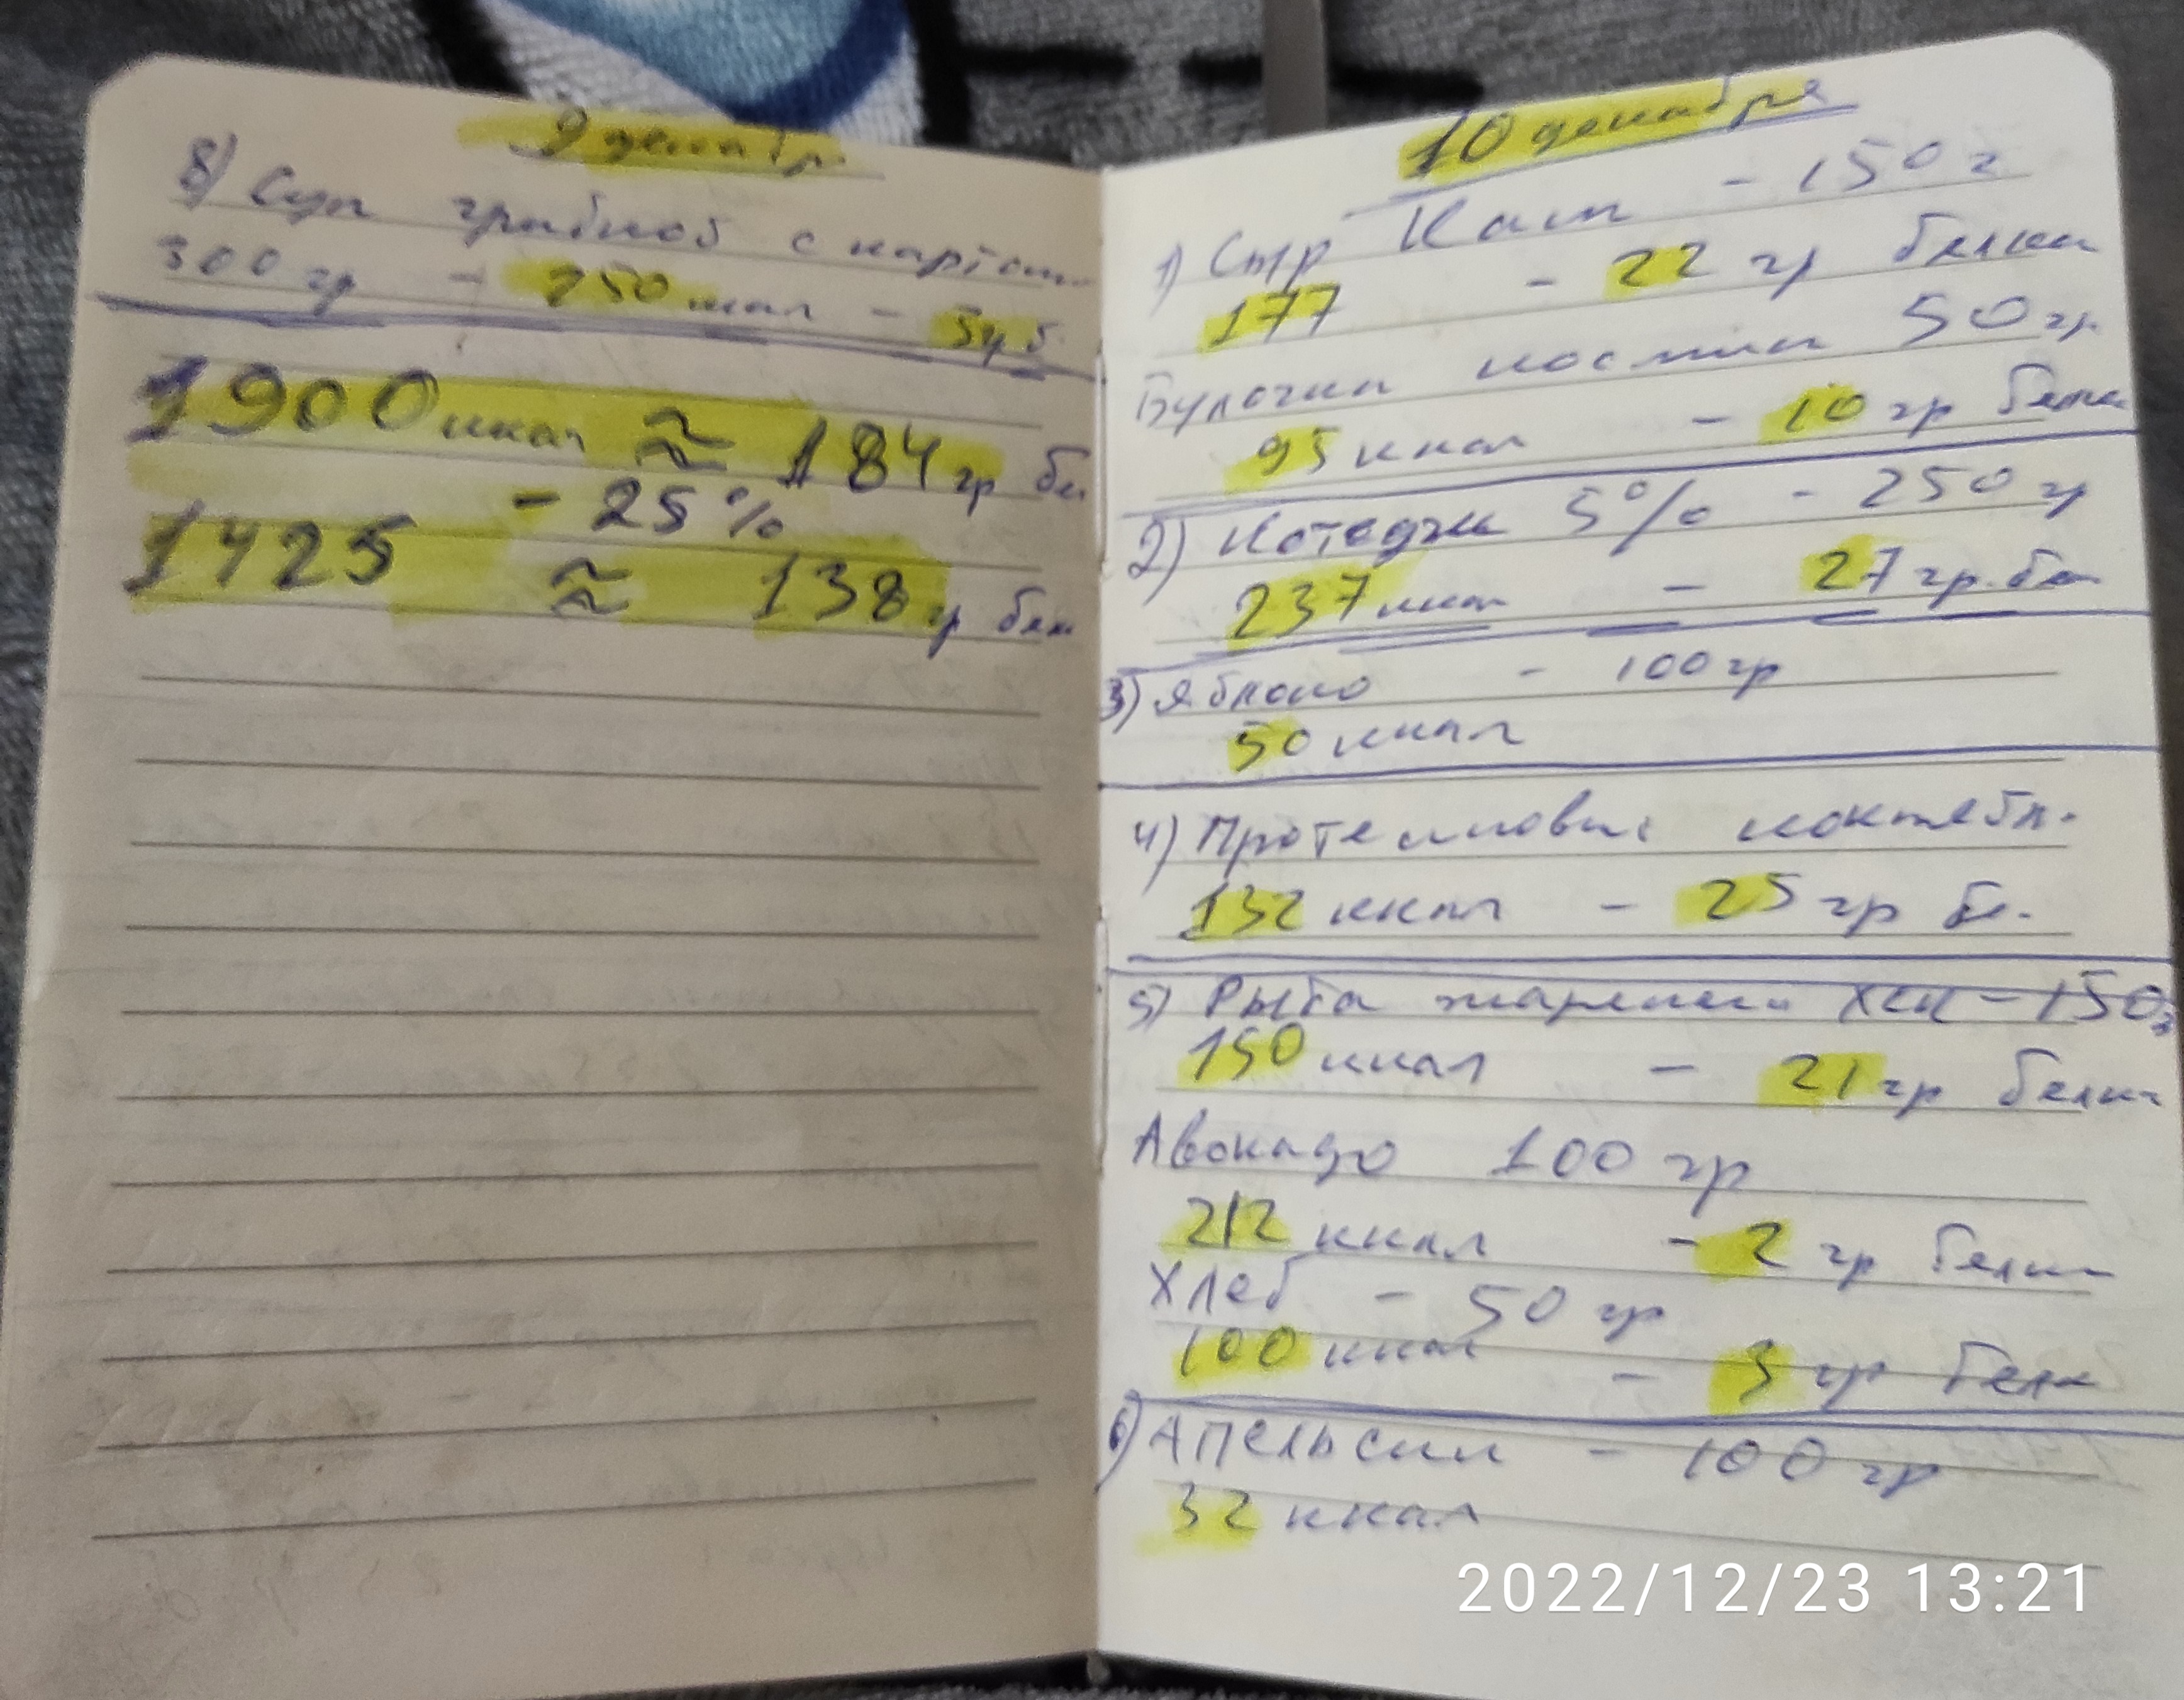 9 декабр
8) Суп грибной с картош
300 гр - 250 ккал - 3гр б.
1900 ккал ≈ 184 гр бел
- 25%
1425 ≈ 138 гр бел
10 декабря
1) Сыр - 150 г
177 - 22 гр белка
Булочки 50 гр.
95 ккал - 10 гр белка
2) Котедж 5% - 250 гр
237 ккал - 27 гр. бел
3) Яблоко - 100 гр
50 ккал
4) Протеиновый коктейль
132 ккал - 25 гр б.
5) Рыба жареная хек - 150г
150 ккал - 21 гр белка
Авокадо 100 гр
212 ккал - 2 гр белка
Хлеб - 50 гр
100 ккал - 3 гр белк
6) Апельсин - 100 гр
32 ккал
2022/12/23 13:21